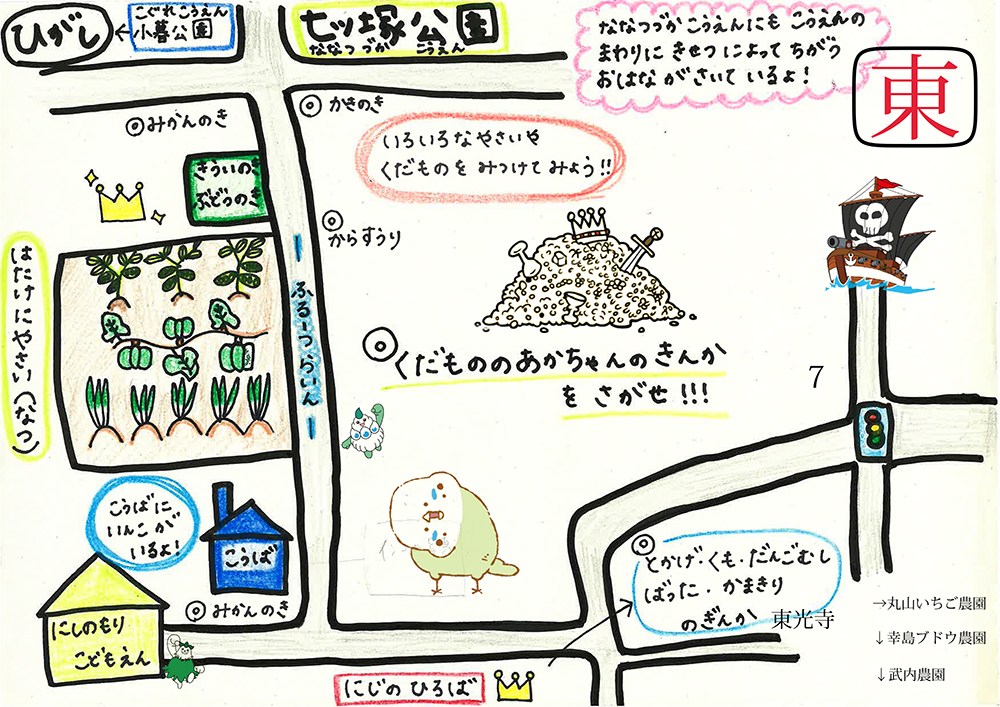 ひがし
←
こぐれこうえん
小暮公園
七ッ塚公園
ななつづか こうえん
ななつづかこうえんにも こうえんの
まわりに きせつ によって ちがう
おはな がさいて いるよ!
東
みかんのき
かきのき
いろいろなやさいや
くだものを みつけてみよう!!
きういのき
ぶどうのき
からすうり
はたけにやさい(なつ)
ふるーつらいん
くだもののあかちゃんのきんか
を さがせ!!!
7
こうばに
いんこが
いるよ!
こうば
みかんのき
にしのもり
こどもえん
とかげ・くも・だんごむし
ばった・かまきり
のぎんか
東光寺
→丸山いちご農園
↓幸島ブドウ農園
↓武内農園
にじの ひろば